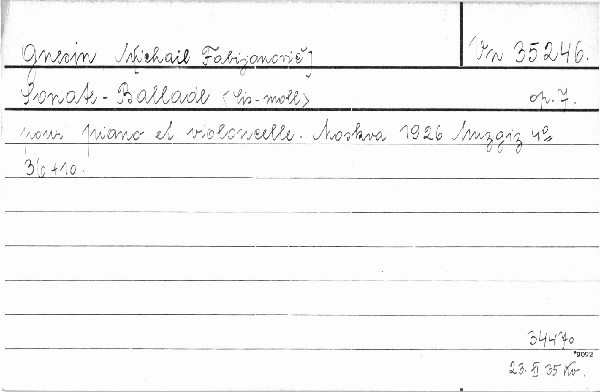 Gnesin M[ichail Fabijanovič] Vn 35246.
Sonate-Ballade (Cis-moll) op. 7.
pour piano et violoncelle. Moskva 1926 Muzgiz 4°
36+10.
34470
*9092
23. II. 35 Kv.